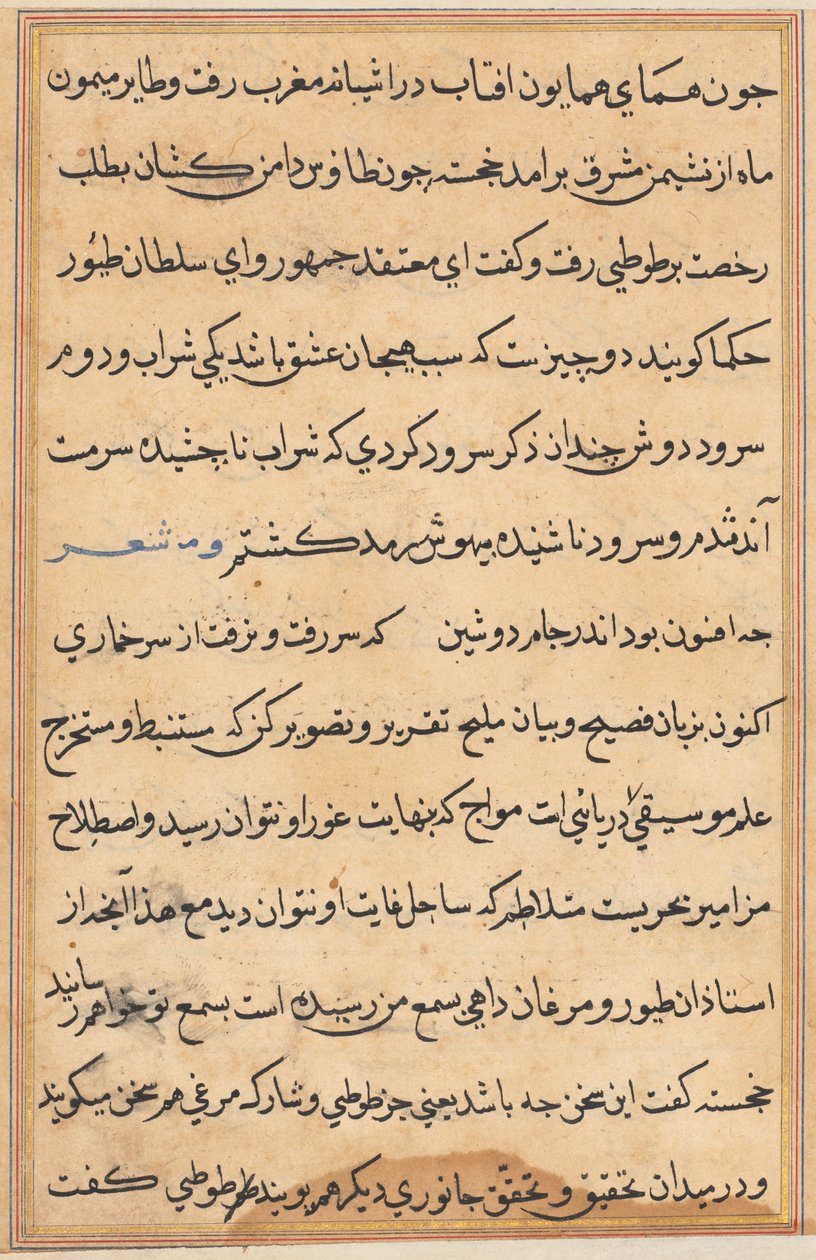 جون همای همایون افتاب در اشیانه مغرب رفت و طایر میمون
ماه از نشیمن مشرق برامد خجسته چون طاوس دامن کشان بطلب
رخصت بر طوطی رفت و کفت ای معتقد جمهور و ای سلطان طیور
حکما کویند دو چیزست که سبب هیجان عشق باشد یکی شراب و دوم
سرود دوش چندان ذکر سرود کردی که شراب ناچشیده سرمست
و سرود ناشنیده بیهوش کشتم شعر
جه افسون بود اندر جام دوشین که سر رفت و نرفت از سر خماری
اکنون بزبان فصیح و بیان ملیح تقریر و تصویر کن که مستنبط و مستخرج
علم موسیقی دریائی است مواج که بنهایت غور او نتوان رسید و اصطلاح
مزامیر بحریست متلاطم که ساحل غایت او نتوان دید مع هذا آنجه از
استاذان طیور و مرغان داهی بسمع من رسیده است بسمع تو خواهم رسانید
خجسته کفت این سخن جه باشد یعنی جز طوطی و شارک مرغی هم سخن میکویند
و در میدان تحقیق و تحقّق جانوری دیکر هم پویند طوطی کفت